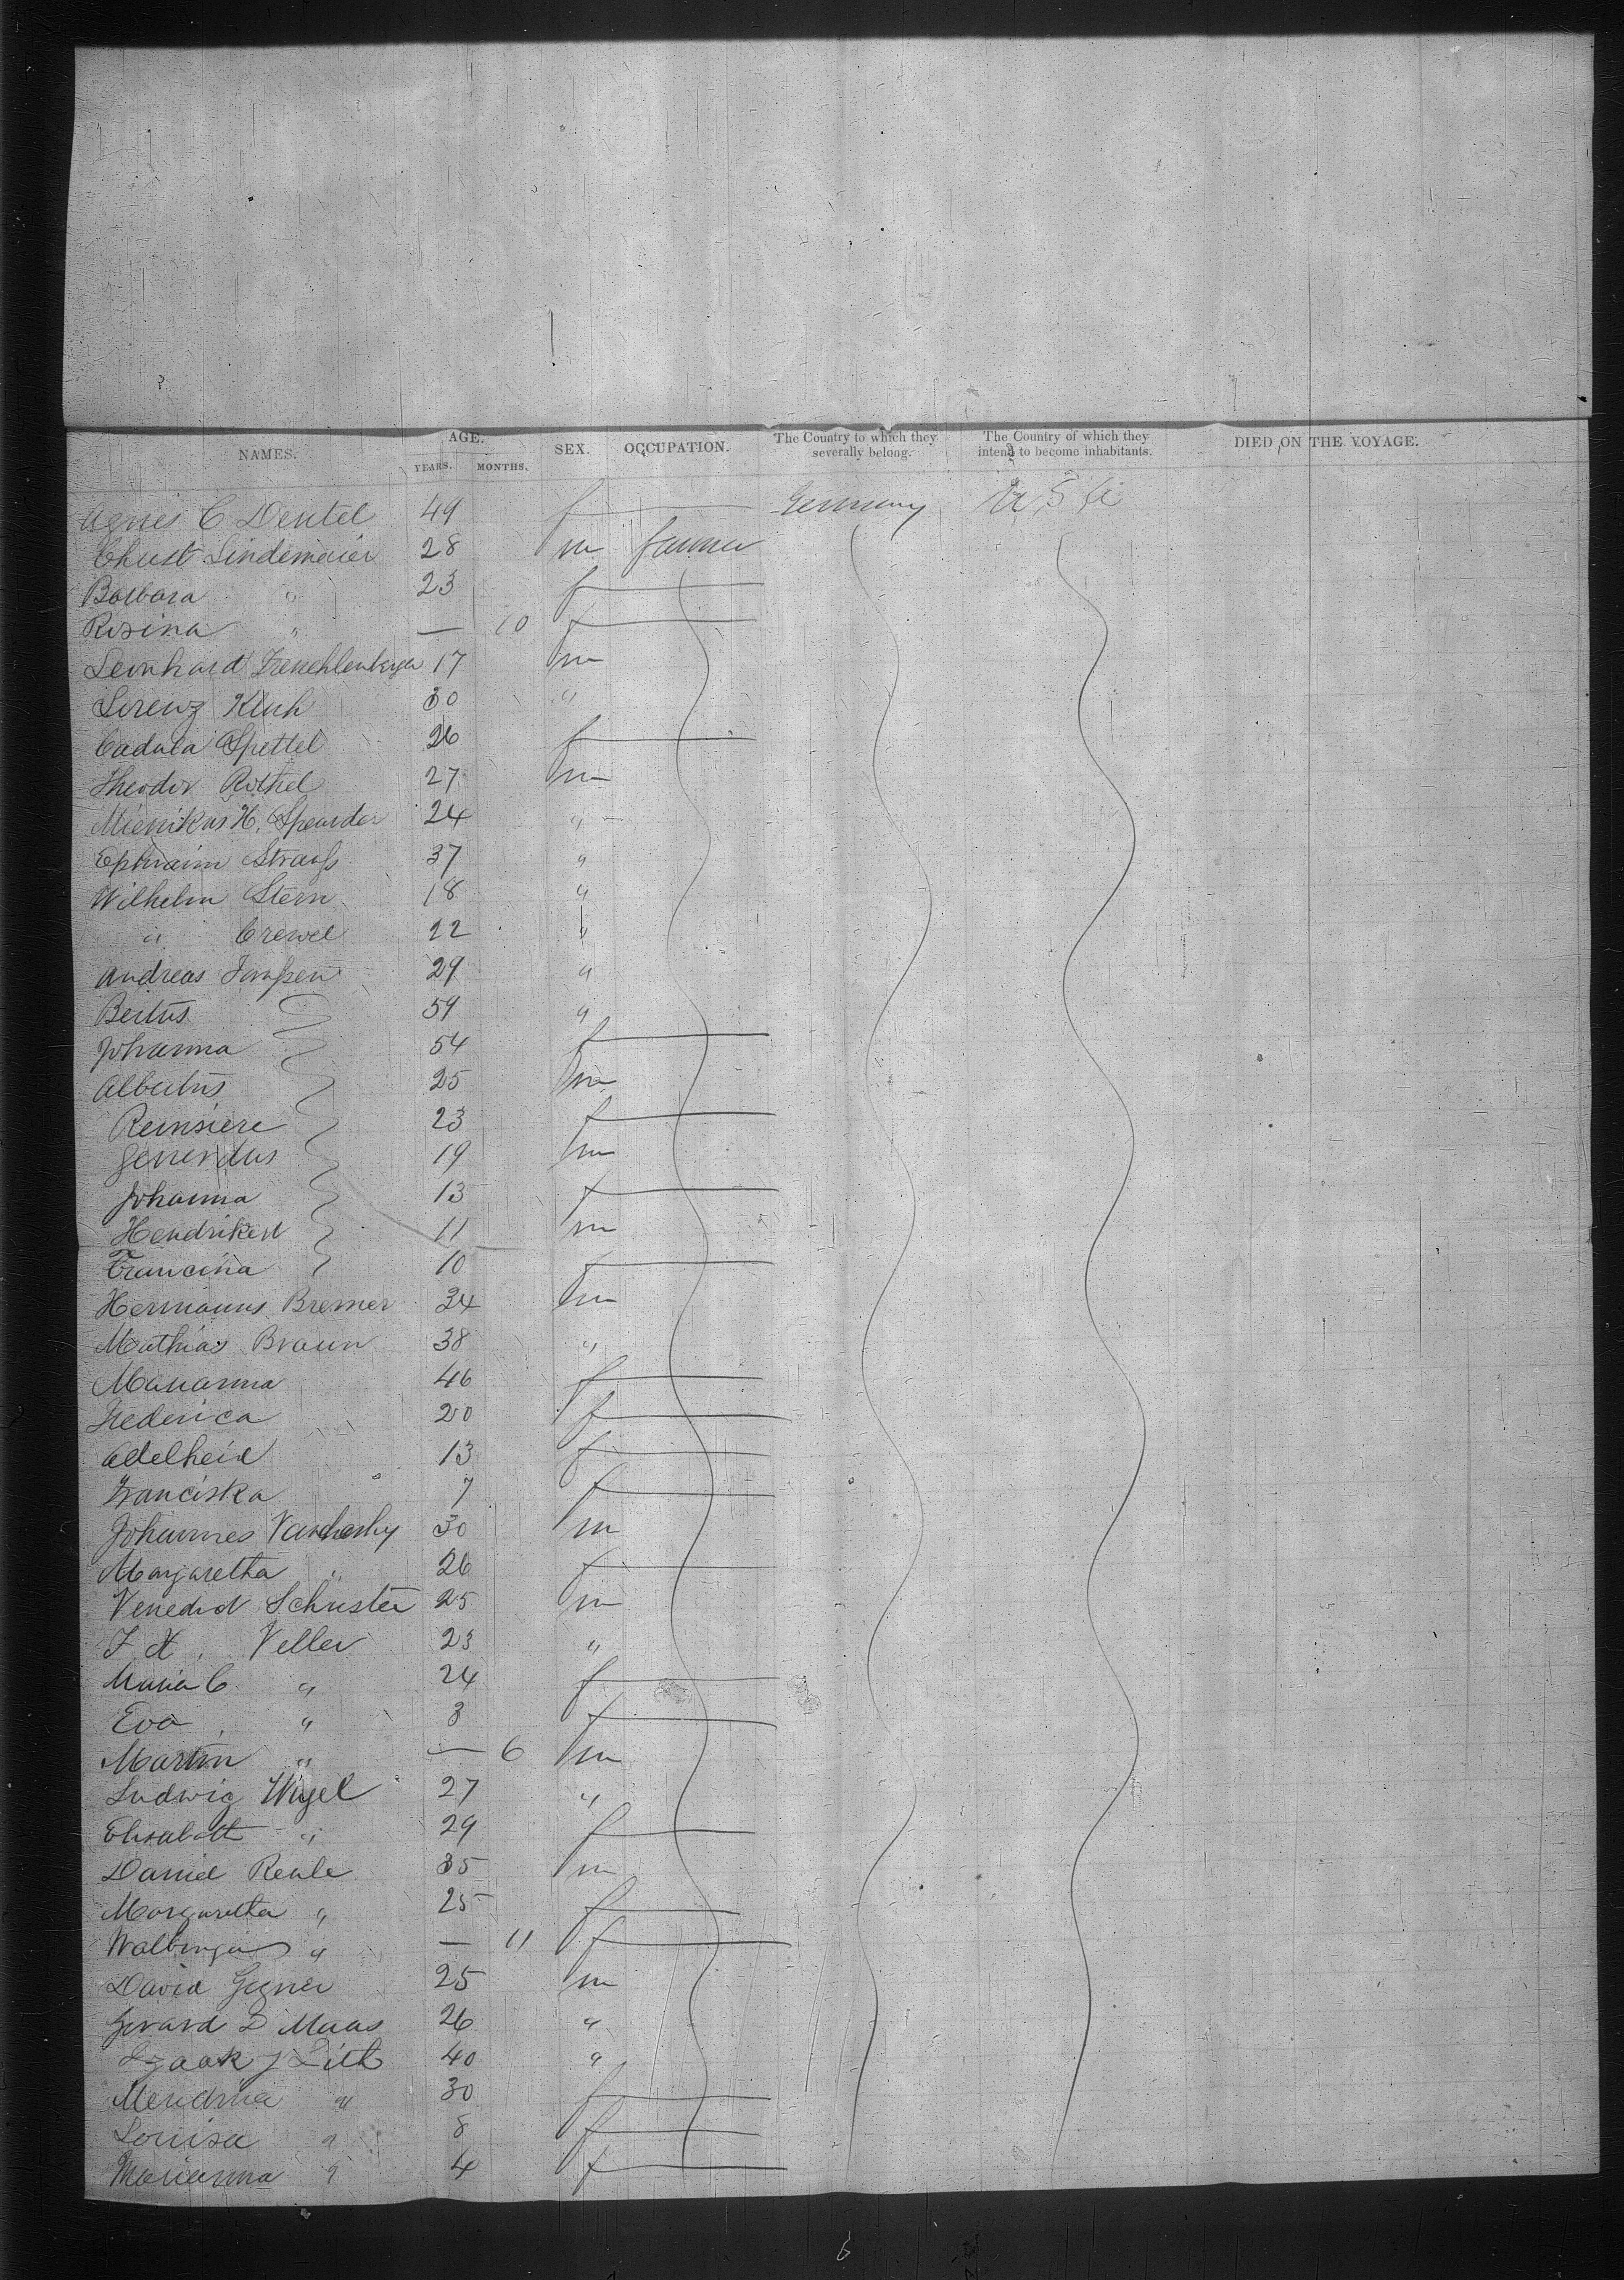 NAMES. AGE. YEARS. MONTHS. SEX. OCCUPATION. The Country to which they severally belong. The Country of which they intend to become inhabitants. DIED ON THE VOYAGE.
Agnes C Dentel 49 f Germany U S A
Christ Lindemeier 28 m farmer
Barbara " 23 f
Rosina " — 10 f
Leonhard 17 m
Lorenz Kluh 30 "
Cadula Spettel 26 f
Theodor Rothel 27 m
H. 24 "
Ephraim Strauss 37 "
Wilhelm Stern 18 "
" Crewel 22 "
Andreas 29 "
Beitus 59 "
Johanna 54 f
Albertus 25 m
Reinsiere 23 f
Gerrerdus 19 m
Johanna 13 f
Hendriken 11 m
Francina 10 f
Hermanus Bremer 34 m
Mathias Braun 38 "
Marianna 46 f
Frederica 20 f
Adelheid 13 f
Franciska 7 f
Johannes 30 m
Margaretha " 26 f
Venedict Schuster 25 m
Veller 23 "
Maria C " 24 f
Eva " 3 f
Martin " — 6 m
Ludwig Wigel 27 "
Elisabeth " 29 f
Daniel Reule 35 m
Margaretha " 25 f
Walburga " — 11 f
David Gegner 25 m
Gerard D Maas 26 "
Izaak J Lilt 40 "
" 30 f
Louisa " 8 f
Marianna " 4 f
6